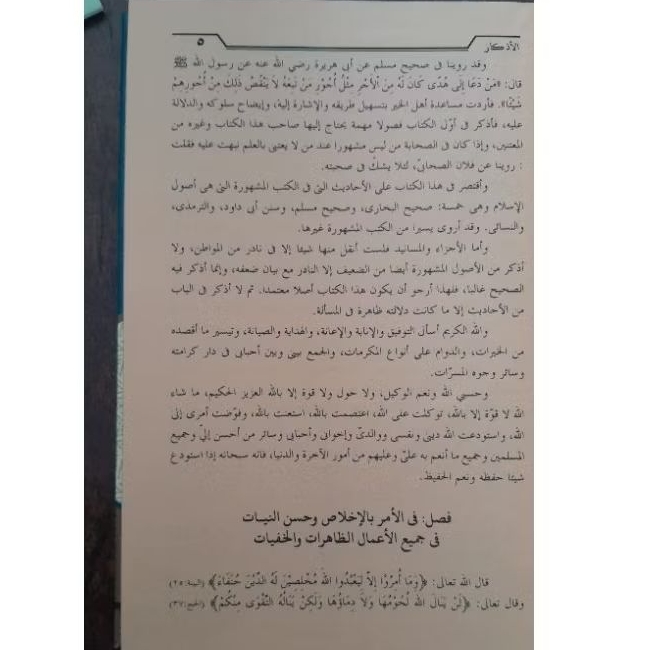 الأذكار ٥
وقد روينا في صحيح مسلم عن أبى هريرة رضي الله عنه عن رسول الله ﷺ
قال: «مَنْ دَعَا إِلَى هُدًى كَانَ لَهُ مِنَ الْأَجْرِ مِثْلُ أُجُوْرِ مَنْ تَبِعَهُ لاَ يَنْقُصُ ذَلِكَ مِنْ أُجُورِهِمْ
شَيْئًا». فأردت مساعدة أهل الخير بتسهيل طريقه والإشارة إلية، وإيضاح سلوكه والدلالة
عليه، فأذكر فى أوّل الكتاب فصولا مهمة يحتاج إليها صاحب هذا الكتاب وغيره من
المعتنين، وإذا كان فى الصحابة من ليس مشهورا عند من لا يعتنى بالعلم نبهت عليه فقلت
: روينا عن فلان الصحابىّ، لئلا يشكّ فى صحبته.
وأقتصر فى هذا الكتاب على الأحاديث التى فى الكتب المشهورة التى هى أصول
الإسلام وهى خمسة: صحيح البخارى، وصحيح مسلم، وسنن أبى داود، والترمذى،
والنسائى. وقد أروى يسيرا من الكتب المشهورة غيرها.
وأما الأجزاء والمسانيد فلست أنقل منها شيئا إلا فى نادر من المواطن، ولا
أذكر من الأصول المشهورة أيضا من الضعيف إلا النادر مع بيان ضعفه، وإنما أذكر فيه
الصحيح غالبا، فلهذا أرجو أن يكون هذا الكتاب أصلا معتمدا. ثم لا أذكر فى الباب
من الأحاديث إلا ما كانت دلالته ظاهرة فى المسألة.
والله الكريم أسأل التوفيق والإنابة والإعانة، والهداية والصيانة، وتيسير ما أقصده
من الخيرات، والدوام على أنواع المكرمات، والجمع بينى وبين أحبابى فى دار كرامته
وسائر وجوه المسرّات.
وحسبي الله ونعم الوكيل، ولا حول ولا قوة إلا بالله العزيز الحكيم، ما شاء
الله لا قوّة إلا بالله، توكلت على الله، اعتصمت بالله، استعنت بالله، وفوّضت أمرى إلى
الله، واستودعت الله دينى ونفسى ووالدىّ وإخوانى وأحبابى وسائر من أحسن إلىّ وجميع
المسلمين وجميع ما أنعم به علىّ وعليهم من أمور الآخرة والدنيا، فانه سبحانه إذا استودع
شيئا حفظه ونعم الحفيظ.
فصل: فى الأمر بالإخلاص وحسن النيـات
فى جميع الأعمال الظاهرات والخفيات
قال الله تعالى: ﴿وَمَا أُمِرُوْا إِلاَّ لِيَعْبُدُوا اللهَ مُخْلِصِيْنَ لَهُ الدِّيْنَ حُنَفَاءَ﴾ (البينة:٢٥)
وقال تعالى: ﴿لَنْ يَنَالَ اللهَ لُحُوْمُهَا وَلاَ دِمَاؤُهَا وَلَكِنْ يَنَالُهُ التَّقْوَى مِنْكُمْ﴾ (الحج:٣٧)